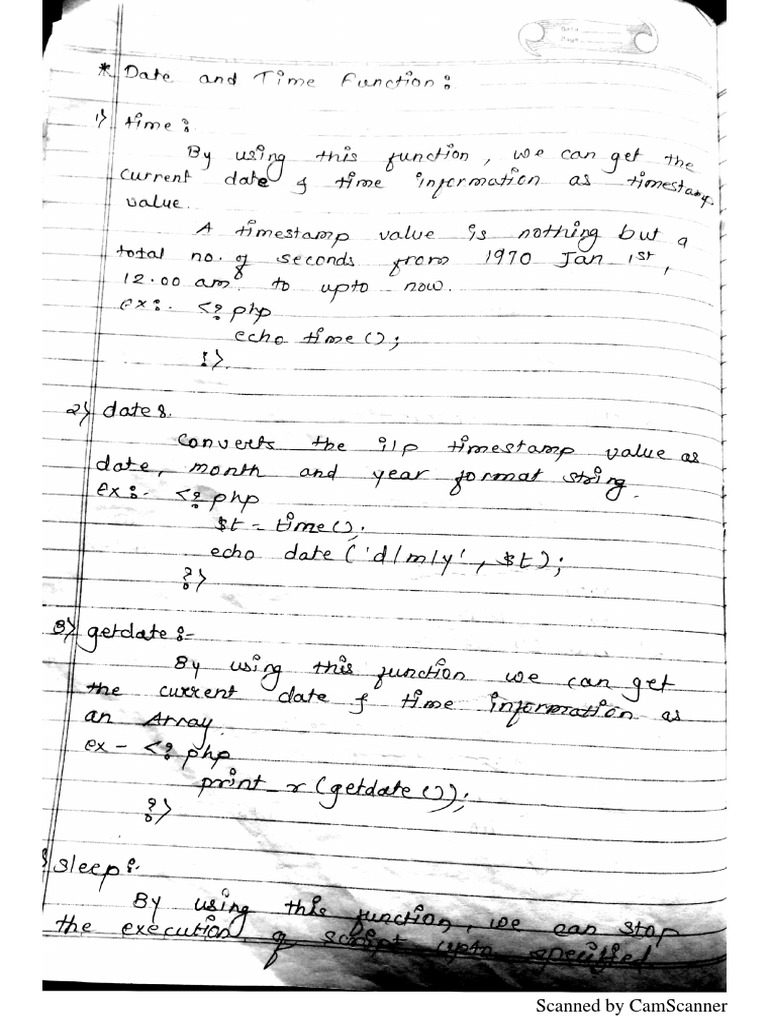 * Date and Time Function :
1) time :
By using this function, we can get the
current date & time information as timestamp
value.
A timestamp value is nothing but a
total no. of seconds from 1970 Jan 1st,
12.00 am. to upto now.
ex:. <? php
echo time();
?>.
2) date :.
converts the i/p timestamp value as
date, month and year format string.
ex :- <? php
$t = time();
echo date ('d/m/y', $t);
?>
3) getdate :-
By using this function we can get
the current date & time information as
an Array.
ex - <? php
print_r (getdate());
?>
sleep :-
By using this function, we can stop
the execution of script upto specified
Scanned by CamScanner